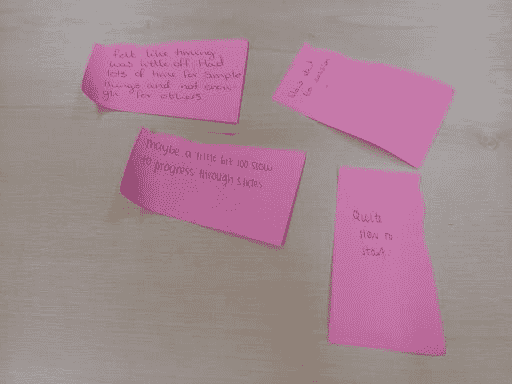 felt like timing
was little off. Had
lots of time for simple
things and not enou-
gh for others
Slow start
to session
maybe a little bit too slow
to progress through slides
Quite
slow to
start.